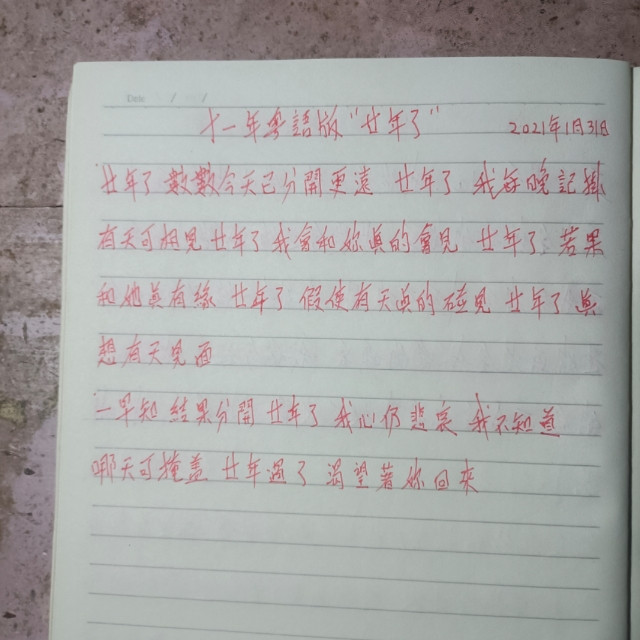 Date: / /
十一年粵語版“廿年了” 2021年1月31日
廿年了 數數今天已分開更遠 廿年了 我每晚記掛
有天可相見 廿年了 我會和妳真的會見 廿年了 若果
和她真有緣 廿年了 假使有天真的碰見 廿年了 真
想有天見面
一早知 結果分開 廿年了 我心仍悲哀 我不知道
哪天可掩蓋 廿年過了 渴望著妳回來